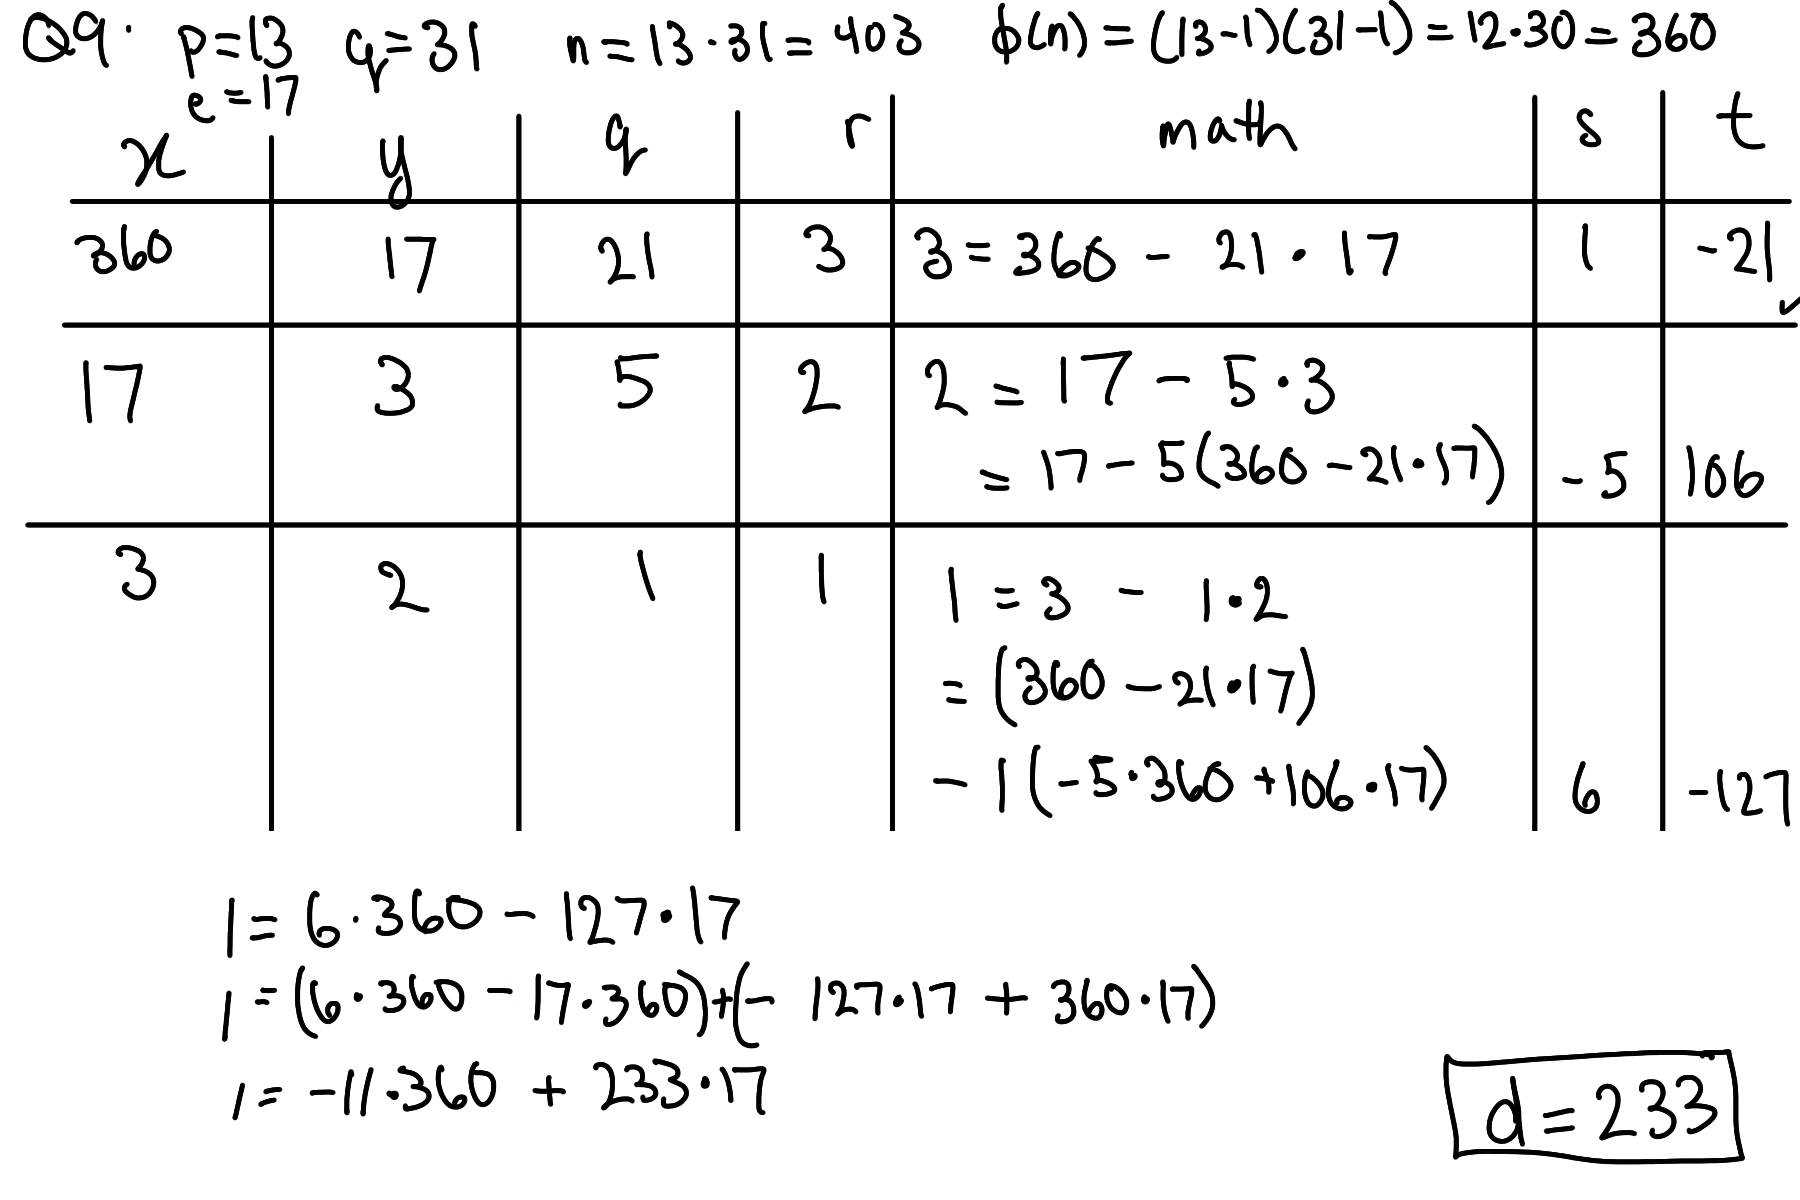 Q9. p=13 q=31 n=13·31=403 ϕ(n)=(13-1)(31-1)=12·30=360
e=17
x y q r math s t
360 17 21 3 3=360-21·17 1 -21 ✓
17 3 5 2 2=17-5·3
=17-5(360-21·17) -5 106
3 2 1 1 1=3-1·2
=(360-21·17)
-1(-5·360+106·17) 6 -127
1=6·360-127·17
1=(6·360-17·360)+(-127·17+360·17)
1=-11·360+233·17
d=233